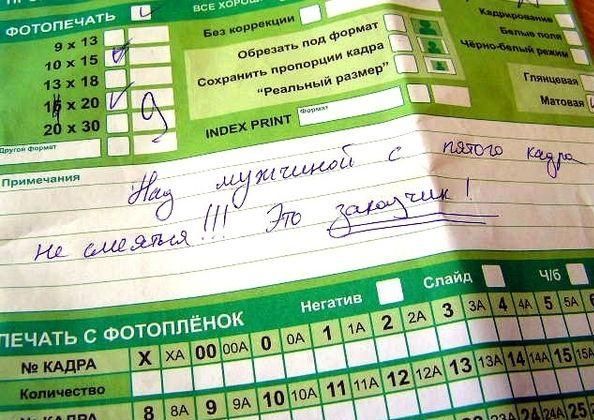 ФОТОПЕЧАТЬ
ВСЕ ХОРОШ
Без коррекции
Кадрирование
9 х 13
Обрезать под формат
Белые поля
10 х 15
Сохранить пропорции кадра
Чёрно-белый режим
13 х 18
"Реальный размер"
Глянцевая
х 20 9
Матовая
20 х 30
INDEX PRINT
Формат
Другой формат
Примечания
Над мужчиной с пятого кадра
не смеяться!!! Это заказчик!
Негатив
Слайд
Ч/б
ПЕЧАТЬ С ФОТОПЛЁНОК
№ КАДРА X XA 00 00A 0 0A 1 1A 2 2A 3 3A 4 4A 5 5A 6
Количество
№ КАДРА 8 8A 9 9A 10 10A 11 11A 12 12A 13 13A 14 14A 15 15A
24 24A 25